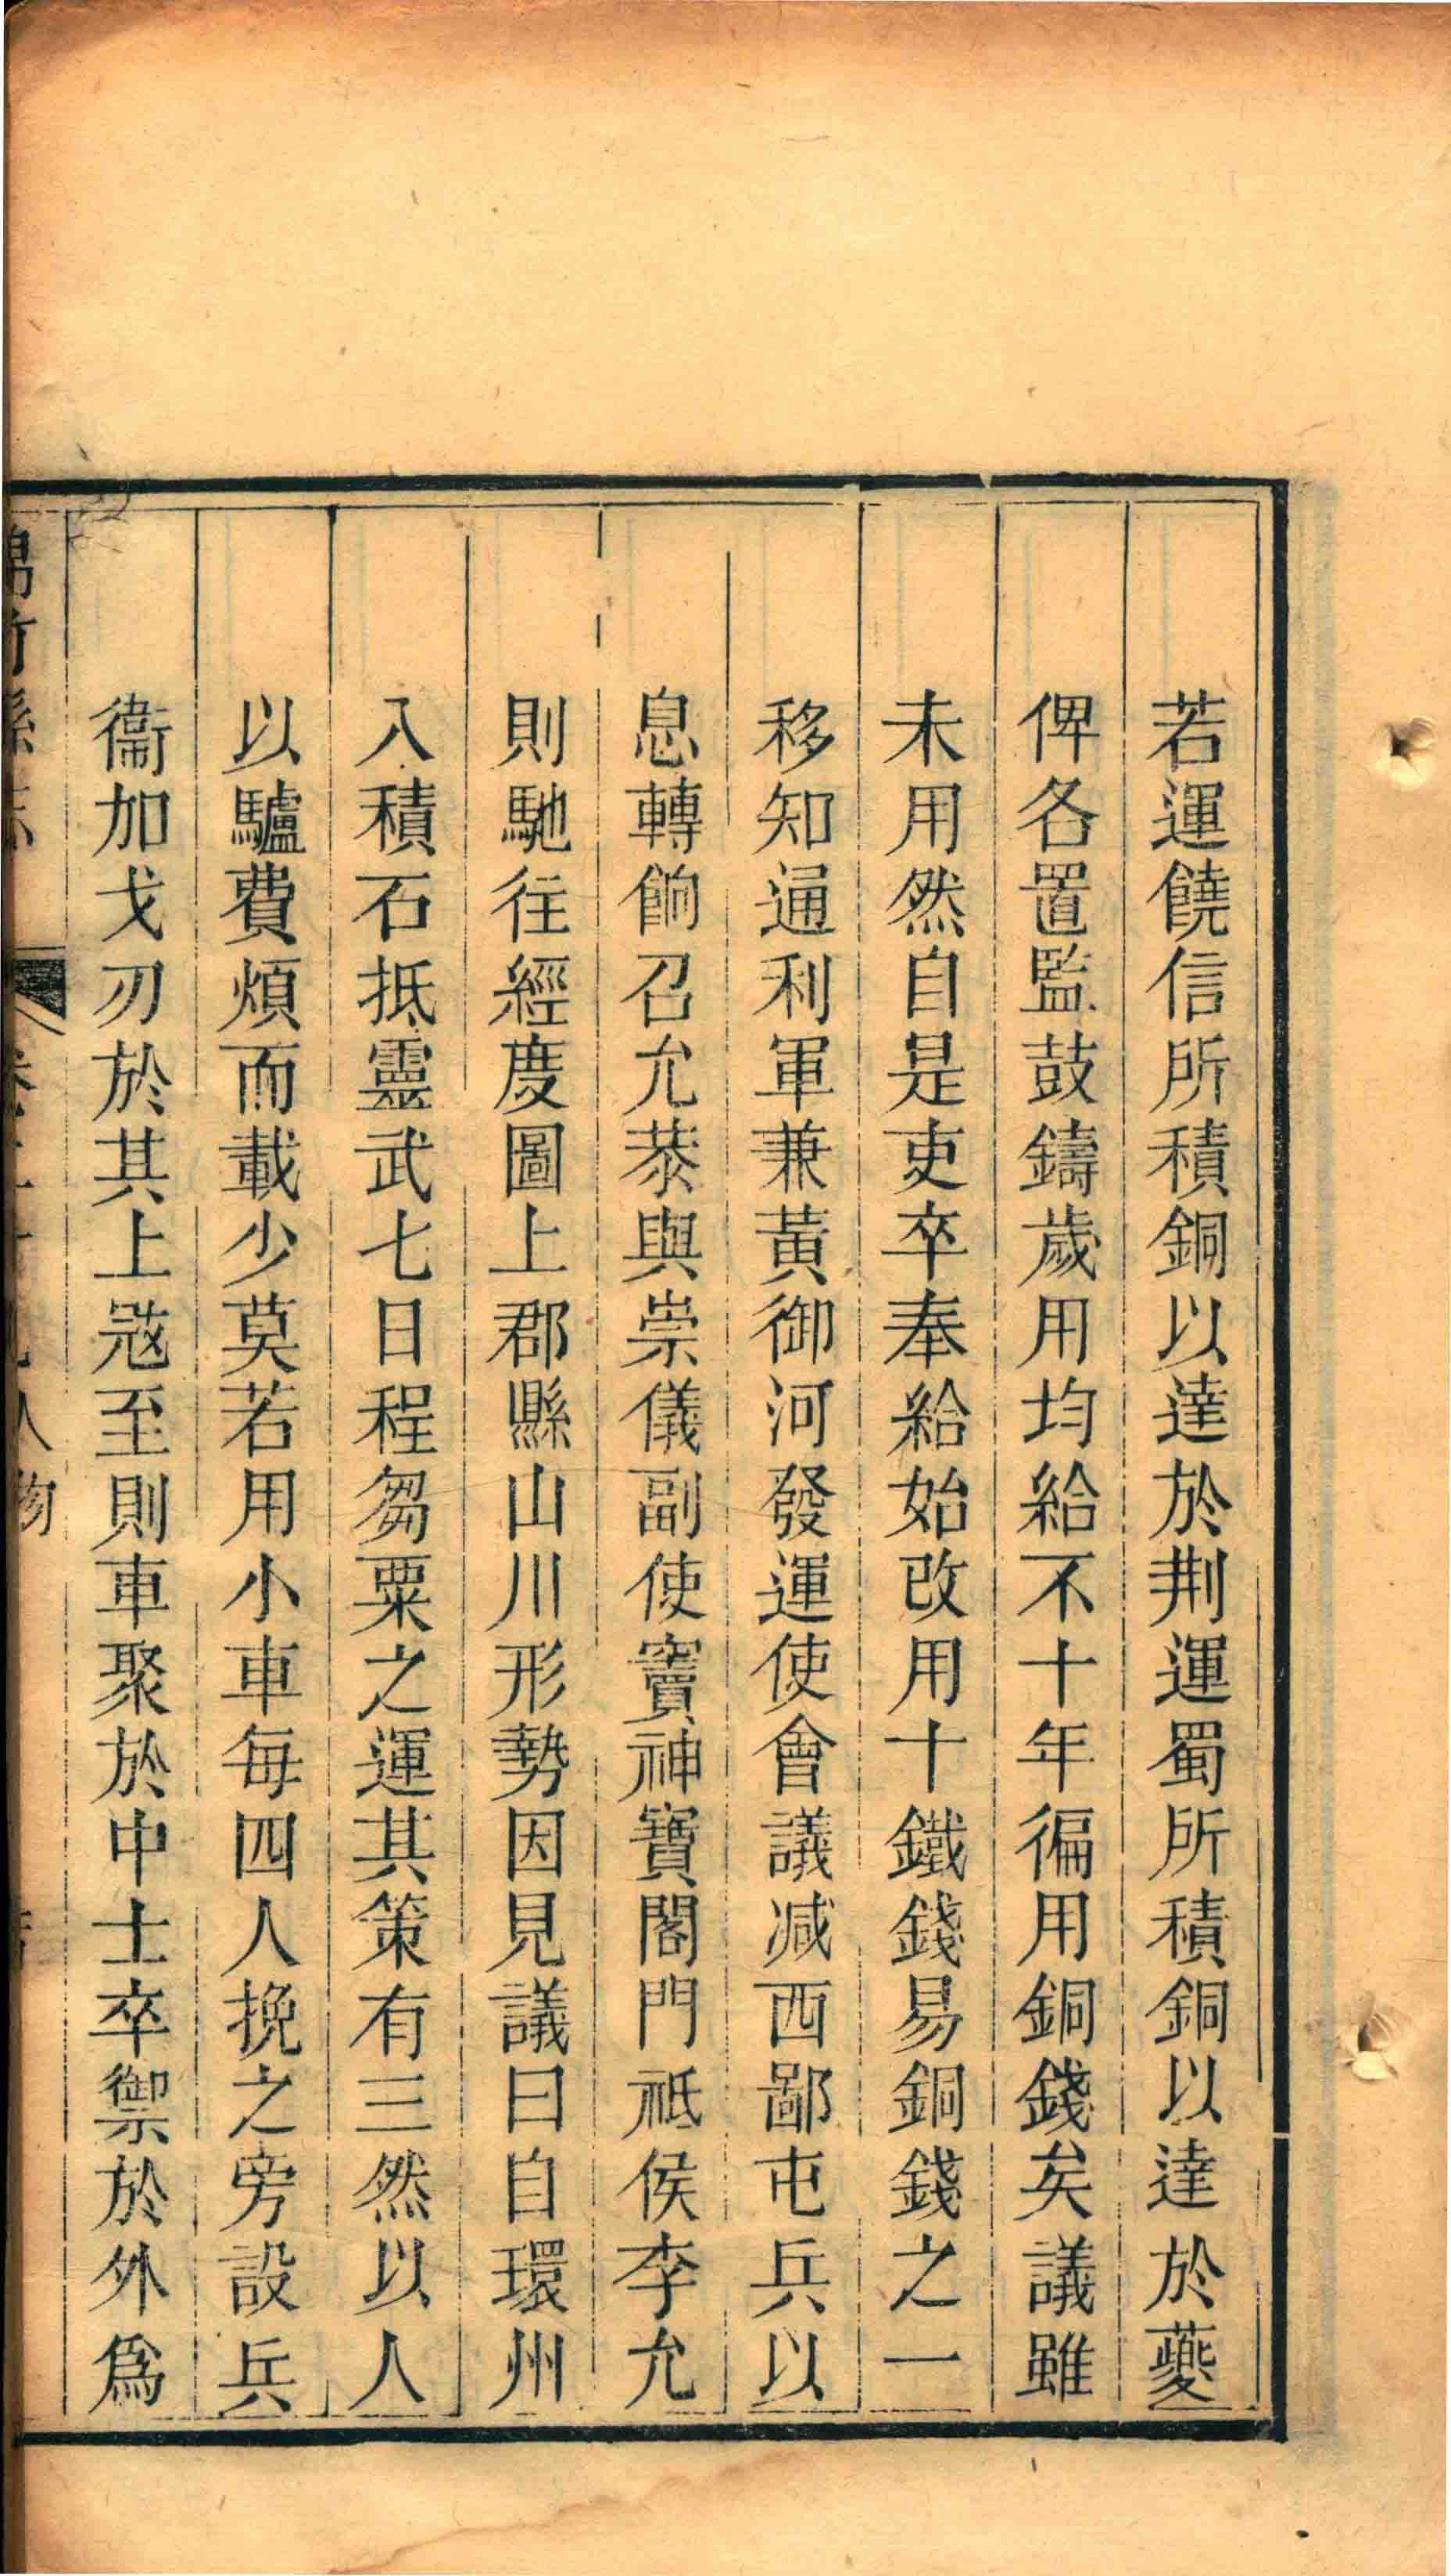 若運饒信所積銅以達於荆運蜀所積銅以達於夔
俾各置監鼓鑄歲用均給不十年徧用銅錢矣議雖
未用然自是吏卒奉給始改用十鐵錢易銅錢之一
移知通利軍兼黃御河發運使會議减西鄙屯兵以
息轉餉召允恭與崇儀副使竇神寶閣門祗侯李允
則馳往經度圖上郡縣山川形勢因見議曰自環州
入積石抵靈武七日程芻粟之運其策有三然以人
以驢費煩而載少莫若用小車每四人挽之旁設兵
衞加戈刃於其上宼至則車聚於中士卒禦於外爲
人物